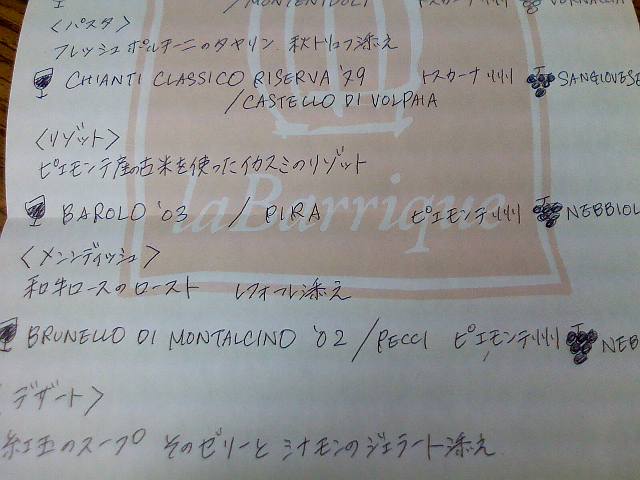 /MONTENIDOLI トスカーナ州 VORNACCIA
〈パスタ〉
フレッシュポルチーニのタヤリン 秋トリュフ添え
CHIANTI CLASSICO RISERVA '79 トスカーナ州 SANGIOVESE
/CASTELLO DI VOLPAIA
〈リゾット〉
ピエモンテ産の古米を使ったイカスミのリゾット
BAROLO '03 / PIRA ピエモンテ州 NEBBIOL
la Barrique
〈メンディッシュ〉
和牛ロースのロースト レフォール添え
BRUNELLO DI MONTALCINO '02 /PECCI ピエモンテ州 NEB
デザート〉
紅玉のスープ そのゼリーと シナモンのジェラート添え